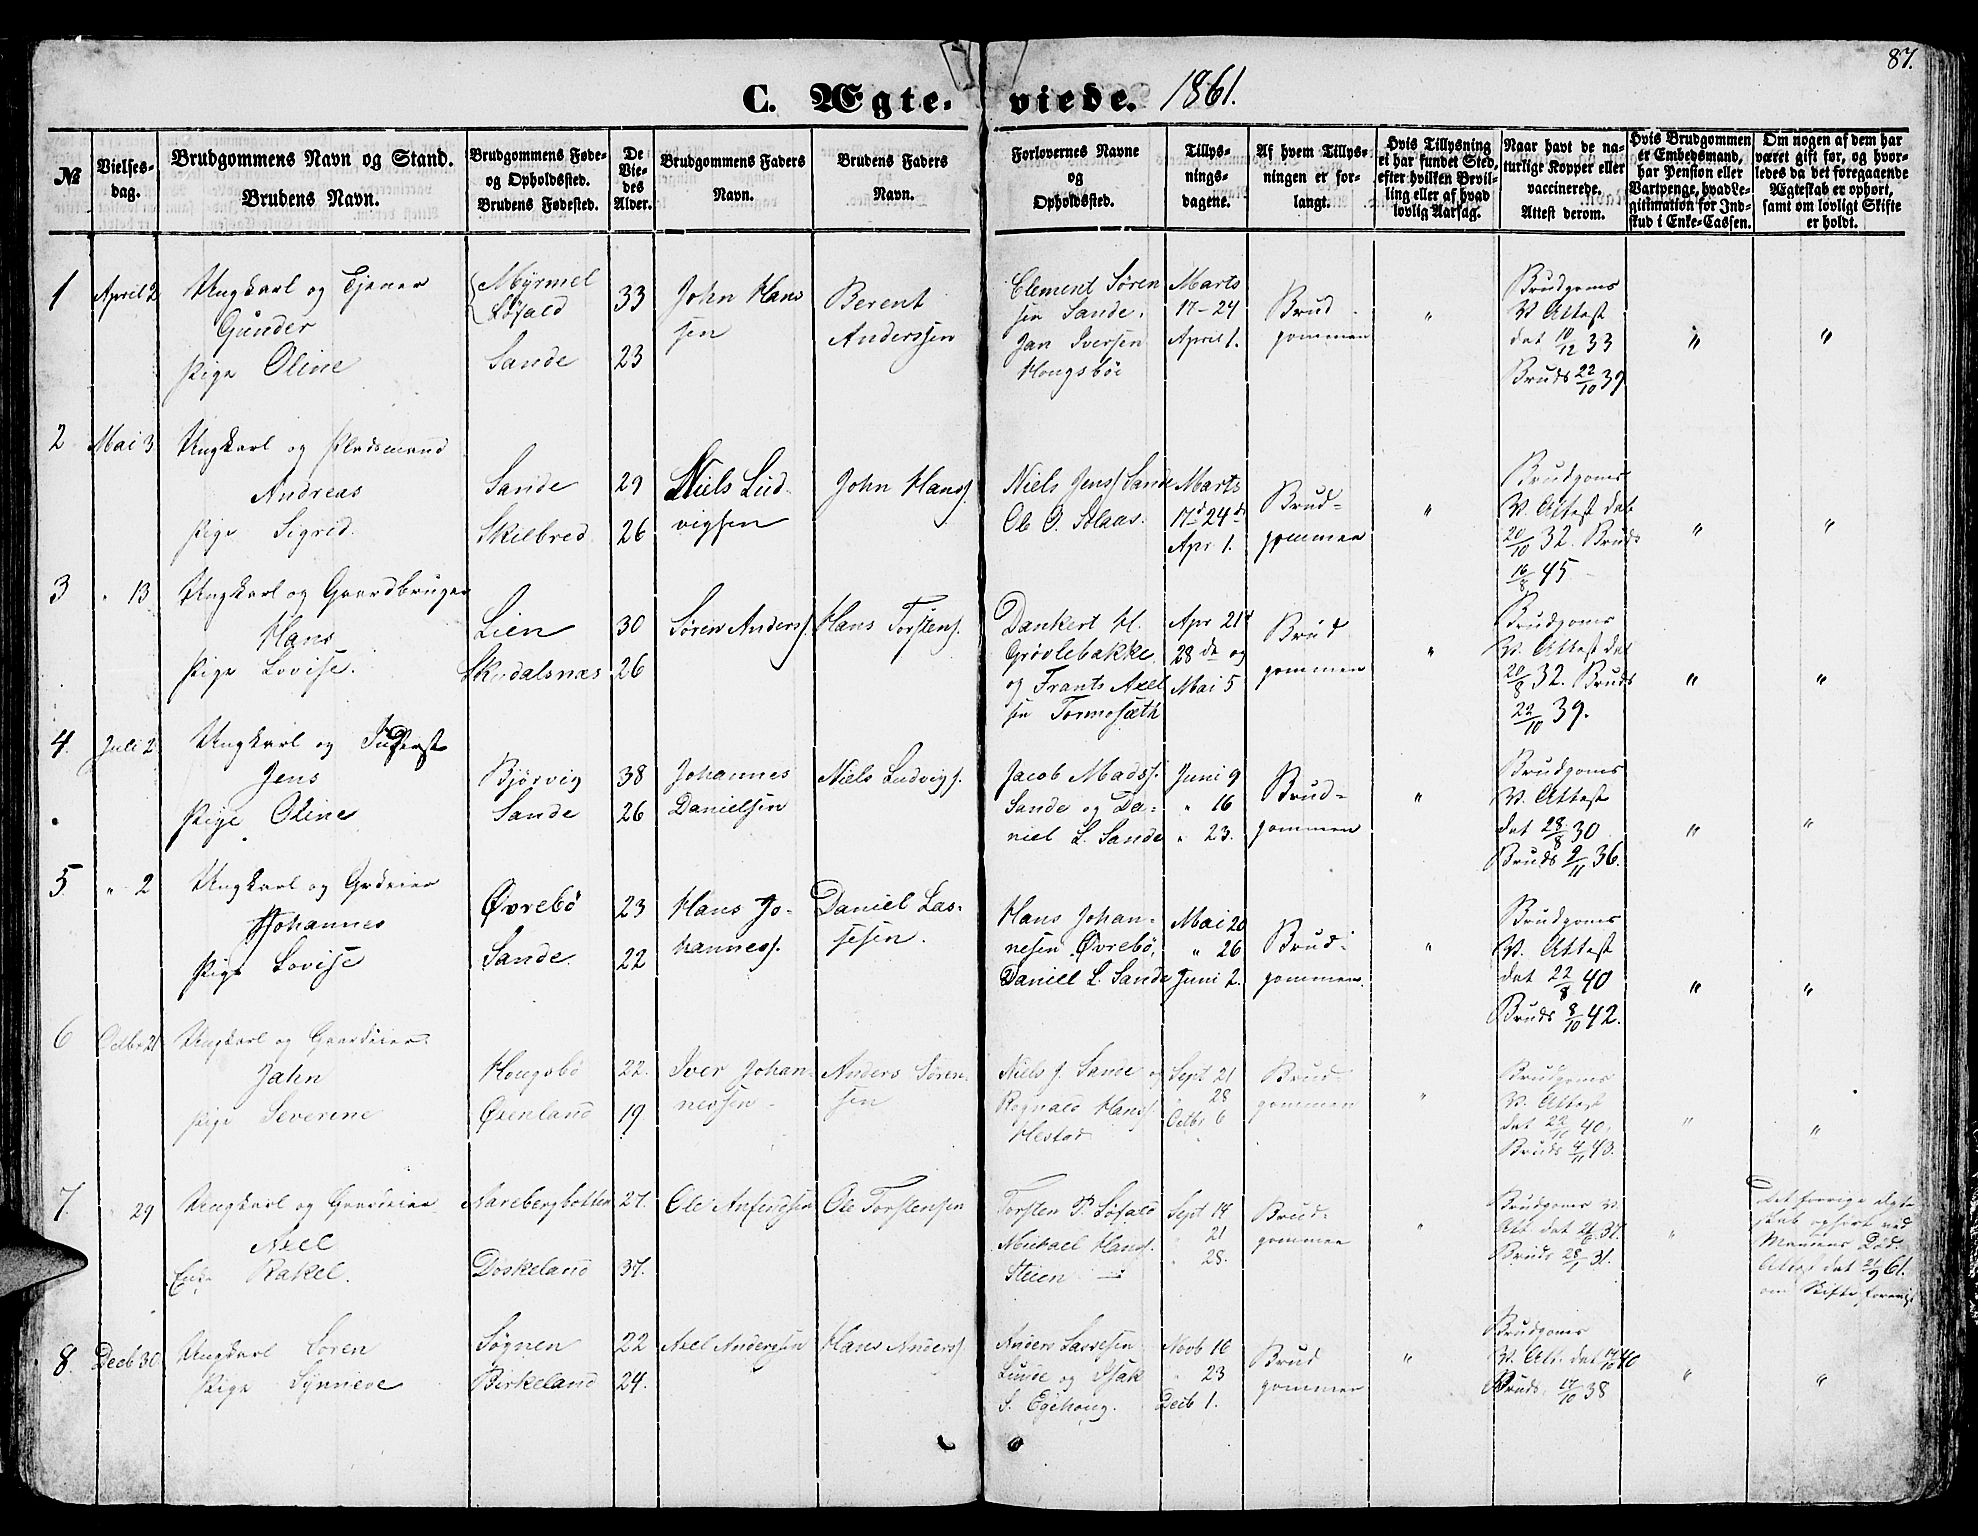 87.
C. Ægte- viede. 1861.
№
Vielses-
dag.
Brudgommens Navn og Stand.
Brudens Navn.
Brudgommens Føde-
og Opholdssted.
Brudens Fødested.
De
Vie-
des
Alder.
Brudgommens Faders
Navn.
Brudens Faders
Navn.
Forlovernes Navne
og
Opholdssted.
Tillys-
nings-
dagene.
Af hvem Tillys-
ningen er for-
langt.
Hvis Tillysning
ei har fundet Sted,
efter hvilken Bevil-
ling eller af hvad
lovlig Aarsag.
Naar havt de na-
turlige Kopper eller
vaccinerede.
Attest derom.
Hvis Brudgommen
er Embedsmand,
har Pension eller
Vartpenge, hvad Le-
gitimation for Ind-
skud i Enke-Cassen.
Om nogen af dem har
været gift før, og hvor-
ledes da det foregaaende
Ægteskab er ophørt,
samt om lovligt Skifte
er holdt.
1 April 2 Ungkarl og Tjener
Gunder
Pige Oline
Myrmel
Løfald
Sande
33
23
John Hans
sen
Berent
Anderssen
Clement Søren
sen Sande.
Jan Iversen
Hougsbøe
Marts
17-24
April 1.
Brud
gommen
"
Brudgoms
V. Attest
det 10/12 33
Bruds 22/10 39
"
"
2 Mai 3 Ungkarl og Pladsmand
Andreas
Pige Sigrid.
Sande
Skilbred
29
26
Niels Lud-
vigsen
John Hanss.
Niels Jenss Sande
Ole O. Aaas.
Marts
17d 24d
Apr 1.
Brud-
gommen
"
Brudgoms
V. Attest det
20/10 32. Bruds
16/8 45
"
"
3 " 13 Ungkarl og Gaardbruger
Hans
Pige Lovise.
Lien
Skudalsnæs
30
26
Søren Anderss.
Hans Torstens.
Dankert H.
Grøvlebakke
og Frants Axel
sen Tormoseth
Apr 21d
28de og
Mai 5
Brud
gommen
"
Brudgoms
V. Attest det
20/8 32. Bruds
22/10 39.
"
"
4. Juli 2 Ungkarl og Inderst
Jens
Pige Oline
Bjørvig
Sande
38
26
Johannes
Danielsen
Niels Ludvigs.
Jacob Madss.
Sande og Da-
niel L. Sande
Juni 9
" 16
" 23.
Brud-
gommen
"
Brudgoms
V. Attest
det 28/8 30
Bruds 9/11 36.
"
"
5 " 2 Ungkarl og Grdeier
Johannes
Pige Lovise
Øvrebø
Sande
23
22
Hans Jo-
hanness.
Daniel Las-
sesen.
Hans Johan-
nesen Øvrebø,
Daniel L. Sande
Mai 20
" 26
Juni 2.
Brud-
gommen.
"
Brudgoms
V. Attest
det 22/8 40
Bruds 8/10 42.
"
"
6 Octbr 21 Ungkarl og Gaardeier
Jahn
Pige Severine
Hougsbø
Øxenland
22.
19
Iver Johan-
nessen
Anders Søren-
sen
Niels J. Sande og
Rognald Hanss.
Hestad
Sept 21
" 28
Octbr 6
Brud-
gommen
"
Brudgoms
V. Attest
det 22/10 40.
Bruds 4/11 43.
"
"
7 " 29 Ungkarl og Gaardeier
Axel
Enke Rakel.
Aarebergbotten
Døskeland
27.
37.
Ole Anfindsen
Ole Torstensen
Torsten P. Løfald
Michael Hanss.
Steien
Sept 14
" 21
" 28.
Brud-
gommen
"
Brudgoms V.
Att. det 26/6 37.
Bruds 28/1 31.
"
Det forrige Ægte
skab ophørt ved
Mandens Død.
Attest det 21/9 61.
om Skifte forevist
8. Decb 30 Ungkarl Søren
Pige Synneve
Søgnen
Birkeland
22
24.
Axel Andersen
Hans Anderss.
Anders Lassesen
Lunde og Isak
S. Egehoug.
Novb 16
" 23
Decb 1.
Brud
gommen
"
Brudgoms
V. Att. det 14/10 40
Bruds 17/10 38
"
"